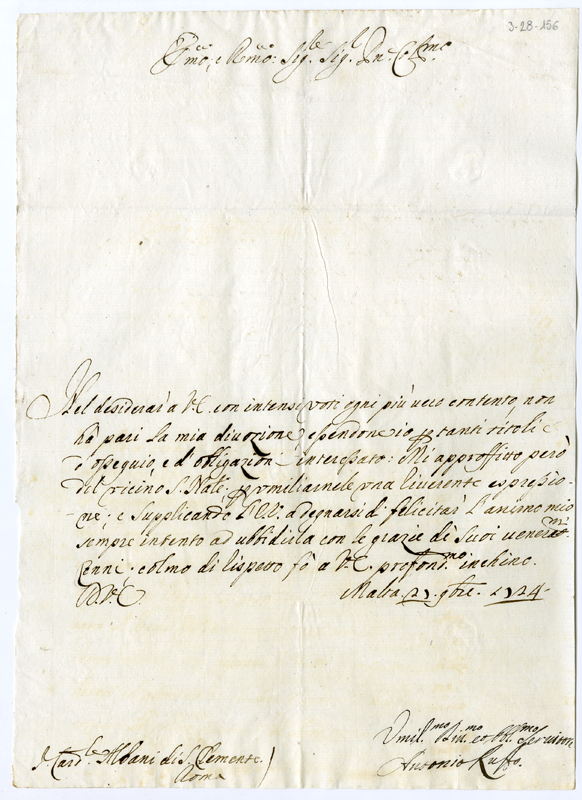 3-28-156
E.mo, e R.mo Sig.re Sig.r P.ne Col.mo
Nel desiderar' a V.E. con intensi voti ogni più vero contento, non
hà pari la mia divozione, essendone io p tanti titoli
d'ossequio, e d'obligazioni interessato: Mi approffitto però
del vicino S. Natale, p umiliarnele una riverente espressio-
ne; e supplicando l'E.V. a degnarsi di felicitar' l'animo mio
sempre intento ad ubbidirla con le grazie de suoi venerat.mi
cenni: colmo di rispetto fò a V.E. profond.mo inchino.
D.V.E. Malta 27. 9bre. 1724.
Umil.mo Div.mo et Obl.mo Servitore
Antonio Ruffo.
Card.le Albani di S. Clemente.)
Roma